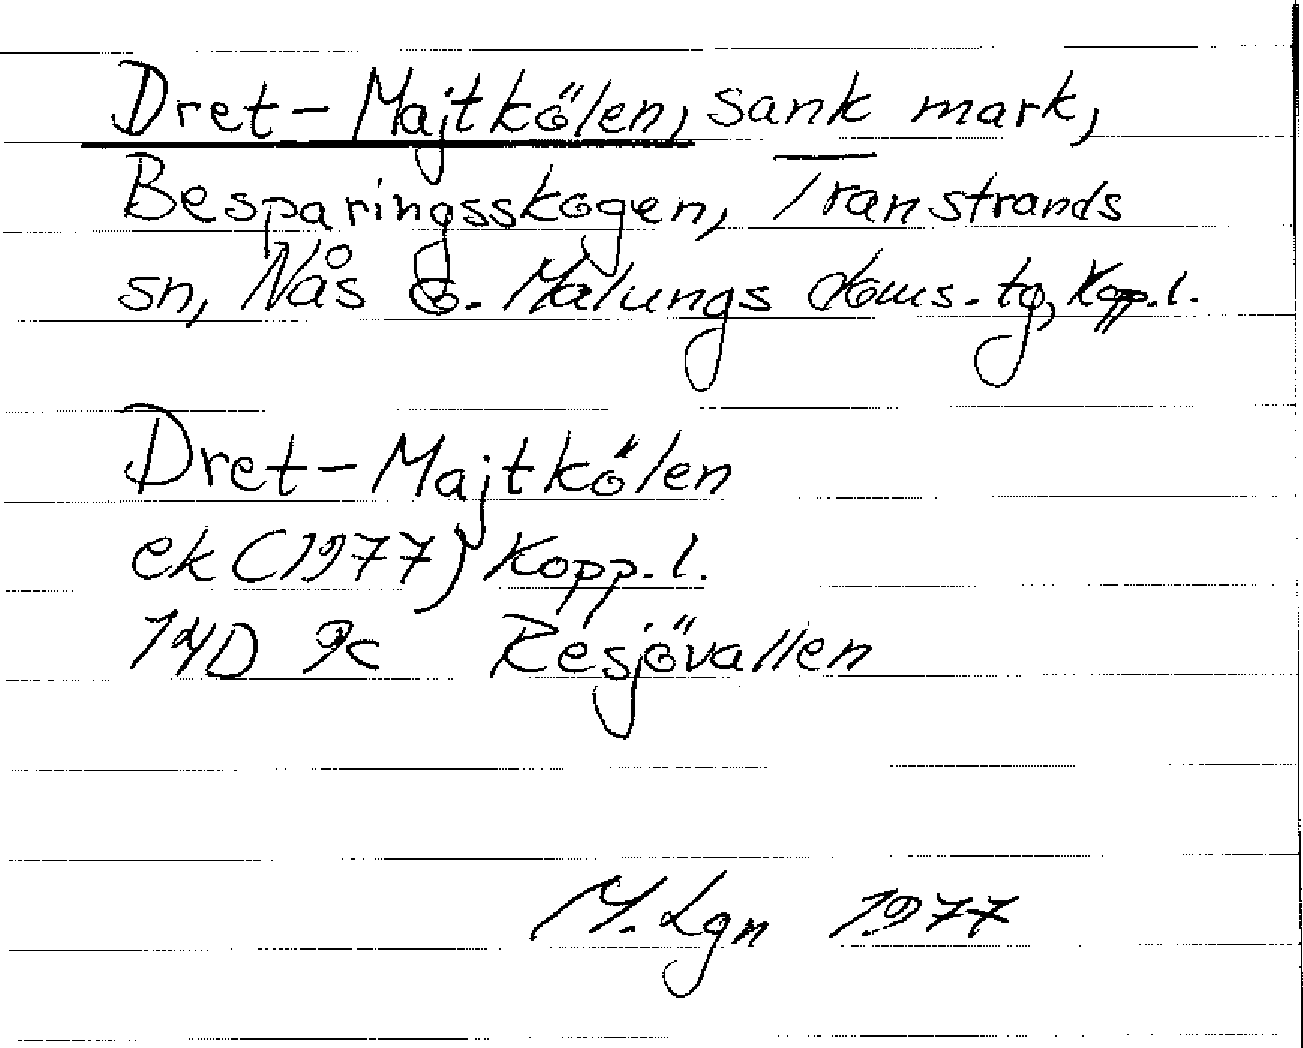 Dret-Majtkölen, sank mark,
Besparingsskogen, Transtrands
sn, Nås o. Malungs doms. tg, Kopp. l.
Dret-Majtkölen
ek (1977) Kopp. l.
14D 9c Resjövallen
M. Lgn 1977